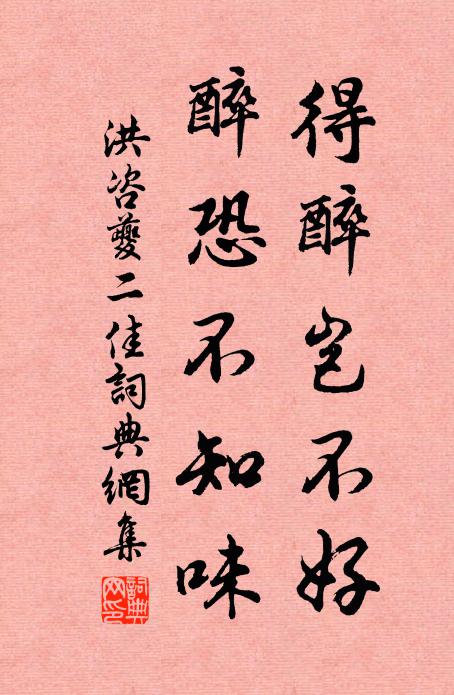 得醉豈不好
醉恐不知味
洪咨夔二佳詞典網集
詞典網印